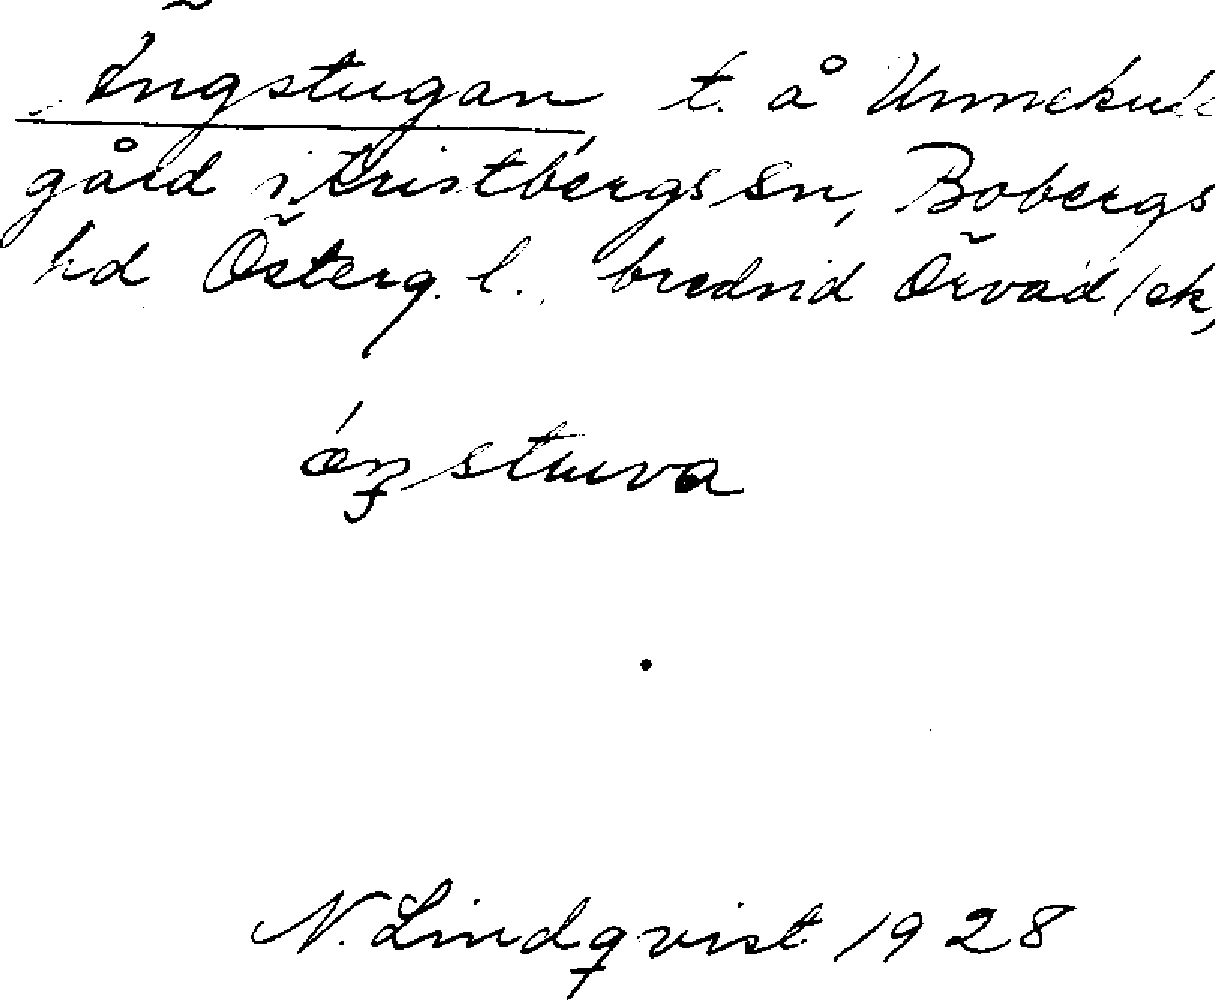 Ängstugan t. å Unnekulla
gård i Kristbergs sn, Bobergs
hd Österg. l. bredvid Örvad /ek,
ǽŋstuva
N. Lindqvist 1928